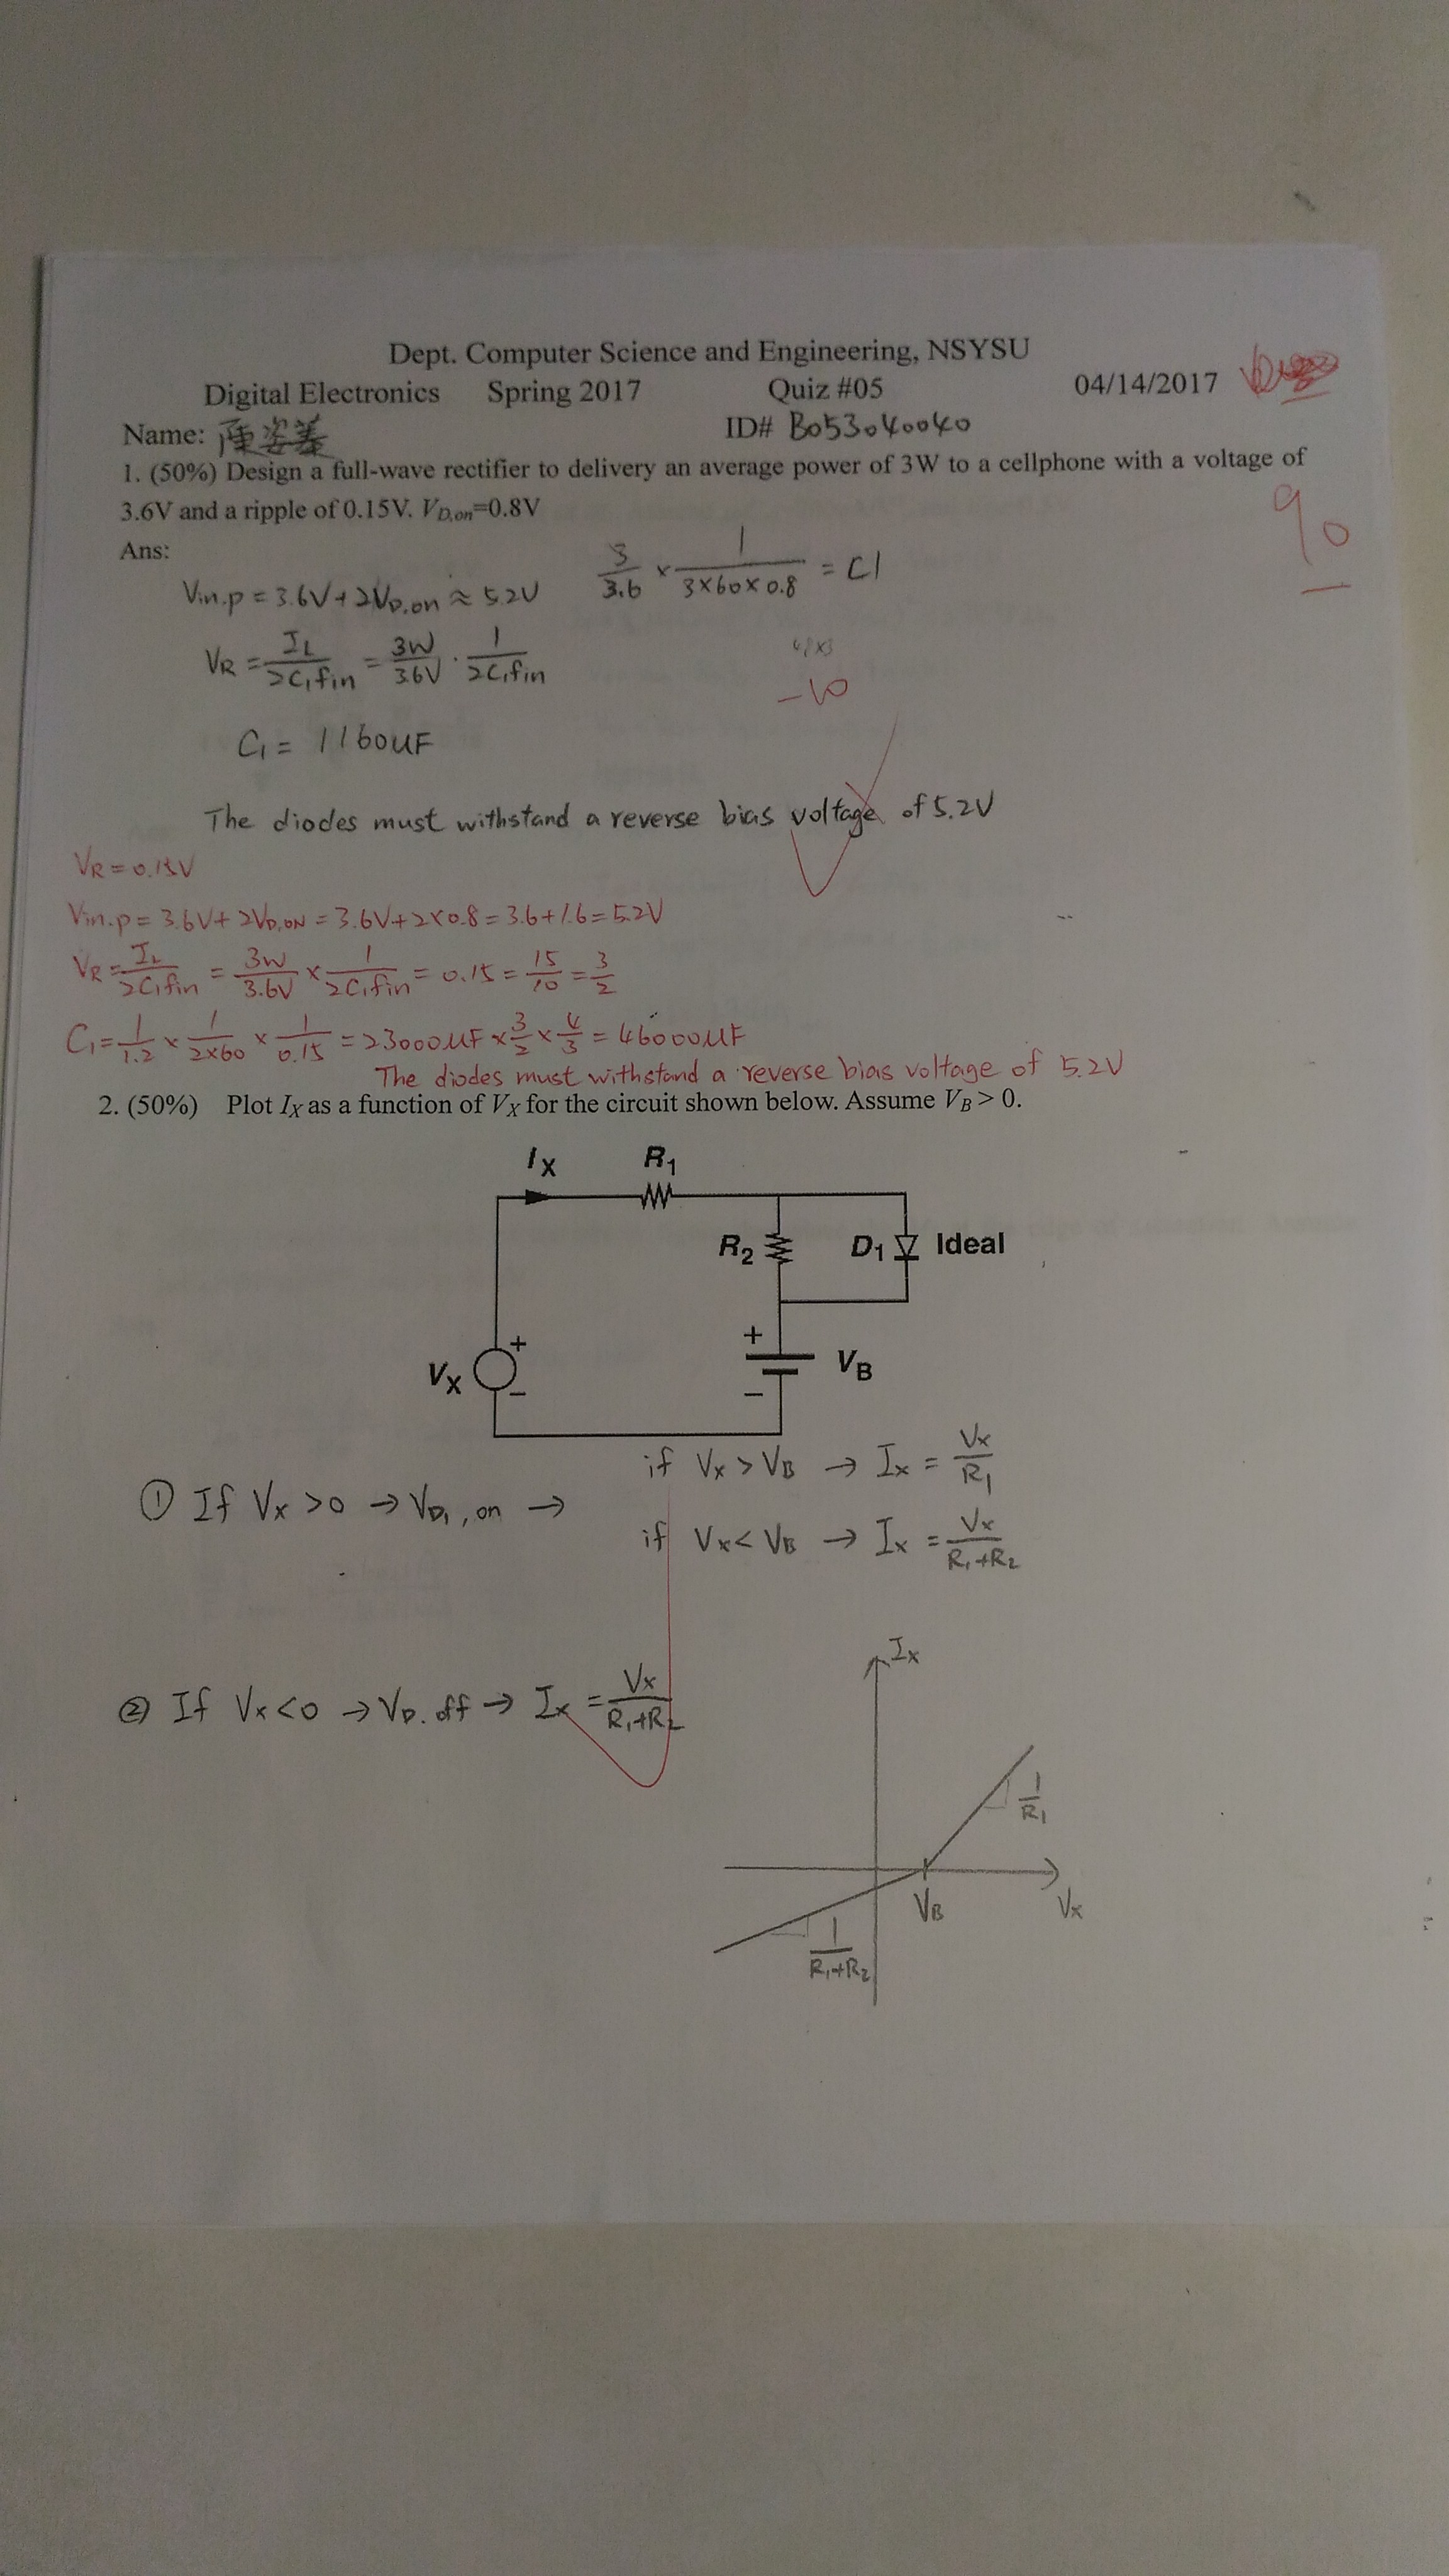 Dept. Computer Science and Engineering, NSYSU
Digital Electronics Spring 2017 Quiz #05 04/14/2017
Name: 陳姿蓁 ID# B053040040
1. (50%) Design a full-wave rectifier to delivery an average power of 3W to a cellphone with a voltage of
3.6V and a ripple of 0.15V. VD,on=0.8V
90
Ans:
3/3.6 × 1/(3×60×0.8) = C1
Vin.p = 3.6V + 2VD,on ≈ 5.2V
VR = IL/(2C1fin) = 3W/3.6V · 1/(2C1fin)
-10
C1 = 1160uF
The diodes must withstand a reverse bias voltage of 5.2V
VR = 0.15V
Vin.p = 3.6V + 2VD,ON = 3.6V + 2×0.8 = 3.6 + 1.6 = 5.2V
VR = IL/(2C1fin) = 3W/3.6V × 1/(2C1fin) = 0.15 = 15/10 = 3/2
C1 = 1/1.2 × 1/(2×60) × 1/0.15 = 23000μF × 3/2 × 4/3 = 46000μF
The diodes must withstand a reverse bias voltage of 5.2V
2. (50%) Plot IX as a function of VX for the circuit shown below. Assume VB > 0.
IX R1
R2 D1 Ideal
+
+
VX VB
−
−
if Vx > VB → Ix = Vx/R1
① If Vx > 0 → VD1, on →
if Vx < VB → Ix = Vx/(R1+R2)
Ix
② If Vx < 0 → VD. off → Ix = Vx/(R1+R2)
1/R1
VB Vx
1/(R1+R2)